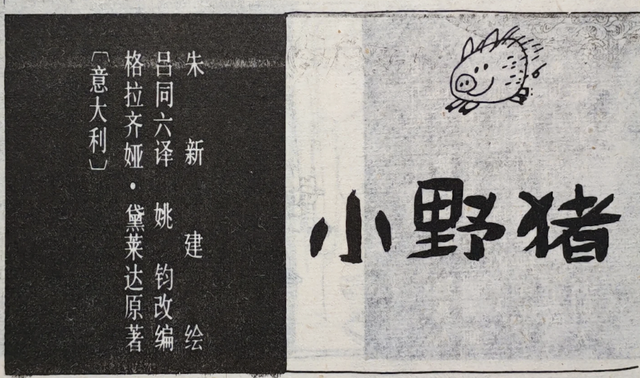 小野猪
〔意大利〕
格拉齐娅·黛莱达原著
吕同六译 姚钧改编
朱新建绘